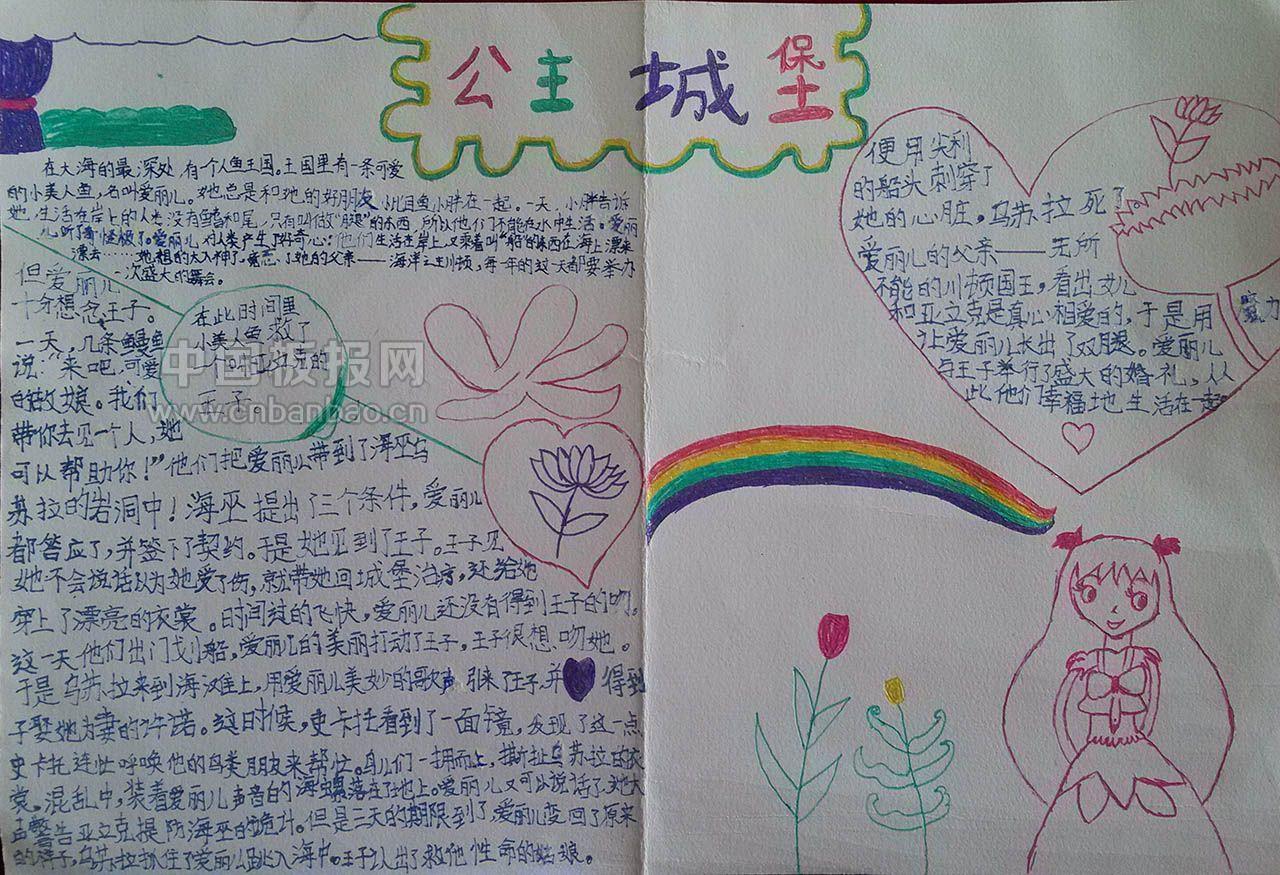 公主城堡
在大海的最深处,有个人鱼王国。王国里有一条可爱
的小美人鱼,名叫爱丽儿。她总是和她的好朋友 比目鱼小胖在一起。一天,小胖告诉
她,生活在岸上的人类没有鳍和尾,只有叫做"腿"的东西,所以他们不能在水中生活。爱丽
儿听了奇怪极了。爱丽儿对人类产生了好奇心:他们生活在岸上,又乘着叫"船"的东西在海上漂来
漂去……她想的太入神了,竟忘了她的父亲——海洋之王川顿,每一年的这一天都要举办
一次盛大的舞会。
在此时间里
小美人鱼救了
一个叫亚立克的
王子。
但爱丽儿
十分想念王子。
一天,几条鳗鱼
说:"来吧,可爱
的姑娘。我们
带你去见一个人,她
可以帮助你!"他们把爱丽儿带到了海巫乌
苏拉的岩洞中!海巫提出了三个条件,爱丽儿
都答应了,并签下了契约。于是她见到了王子。王子见
她不会说话以为她受了伤,就带她回城堡治疗,还给她
穿上了漂亮的衣裳。时间过的飞快,爱丽儿还没有得到王子的吻。
这一天他们出门划船,爱丽儿的美丽打动了王子,王子很想吻她。
于是乌苏拉来到海滩上,用爱丽儿美妙的歌声引来了王子,并 得到
子娶她为妻的许诺。这时候,史卡托看到了一面镜,发现了这一点
史卡托连忙呼唤他的鸟类朋友来帮忙。鸟儿们一拥而上,撕扯乌苏拉的衣
裳。混乱中,装着爱丽儿声音的海螺落在了地上。爱丽儿又可以说话了,她大
声警告亚立克提防海巫的诡计。但是三天的期限到了,爱丽儿变回了原来
的样子,乌苏拉抓住了爱丽儿跳入海中。王子认出了救他性命的姑娘。
便用尖利
的船头刺穿了
她的心脏。乌苏拉死了。
爱丽儿的父亲——无所
不能的川顿国王,看出女儿
和亚立克是真心相爱的,于是用魔力
让爱丽儿长出了双腿。爱丽儿
与王子举行了盛大的婚礼,从
此他们幸福地生活在一起
中国板报网
www.cnbanbao.cn